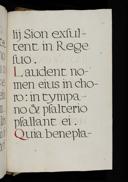 lij Sion exsul-
tent in Rege
suo.
Laudent no-
men eius in cho-
ro: in tympa-
no & psalterio
psallant ei.
Quia benepla-